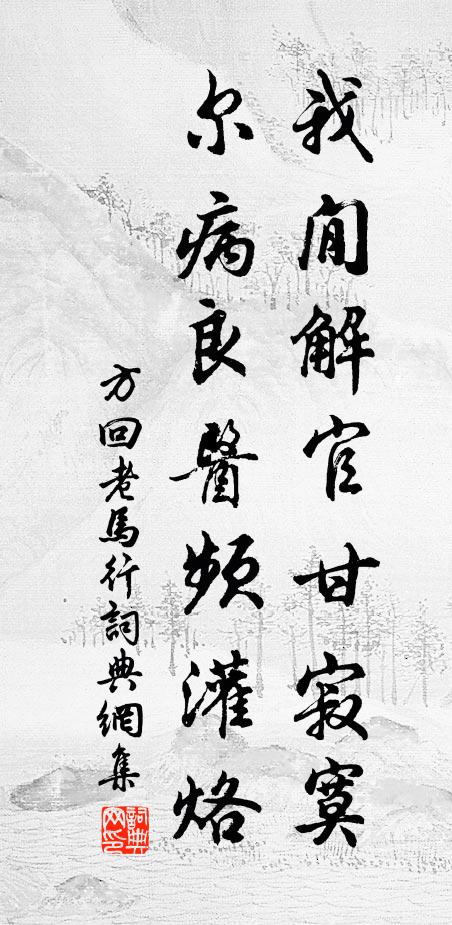 我闲解官甘寂寞
尔病良醫频灌烙
方回老馬行詞典網集
詞典网印